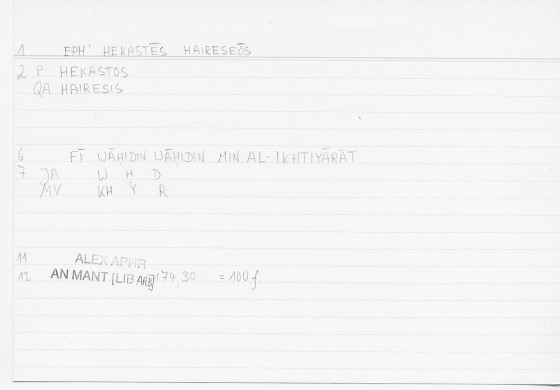 1 EPH' HEKASTĒS HAIRESEŌS
2 P HEKASTOS
QA HAIRESIS
6 FĪ WĀḤIDIN WĀḤIDIN MIN AL-IKHTIYĀRĀT
7 JA W H D
MV KH Y R
11 ALEX APHR
12 AN MANT [LIB ARB] 174,30 = 100f